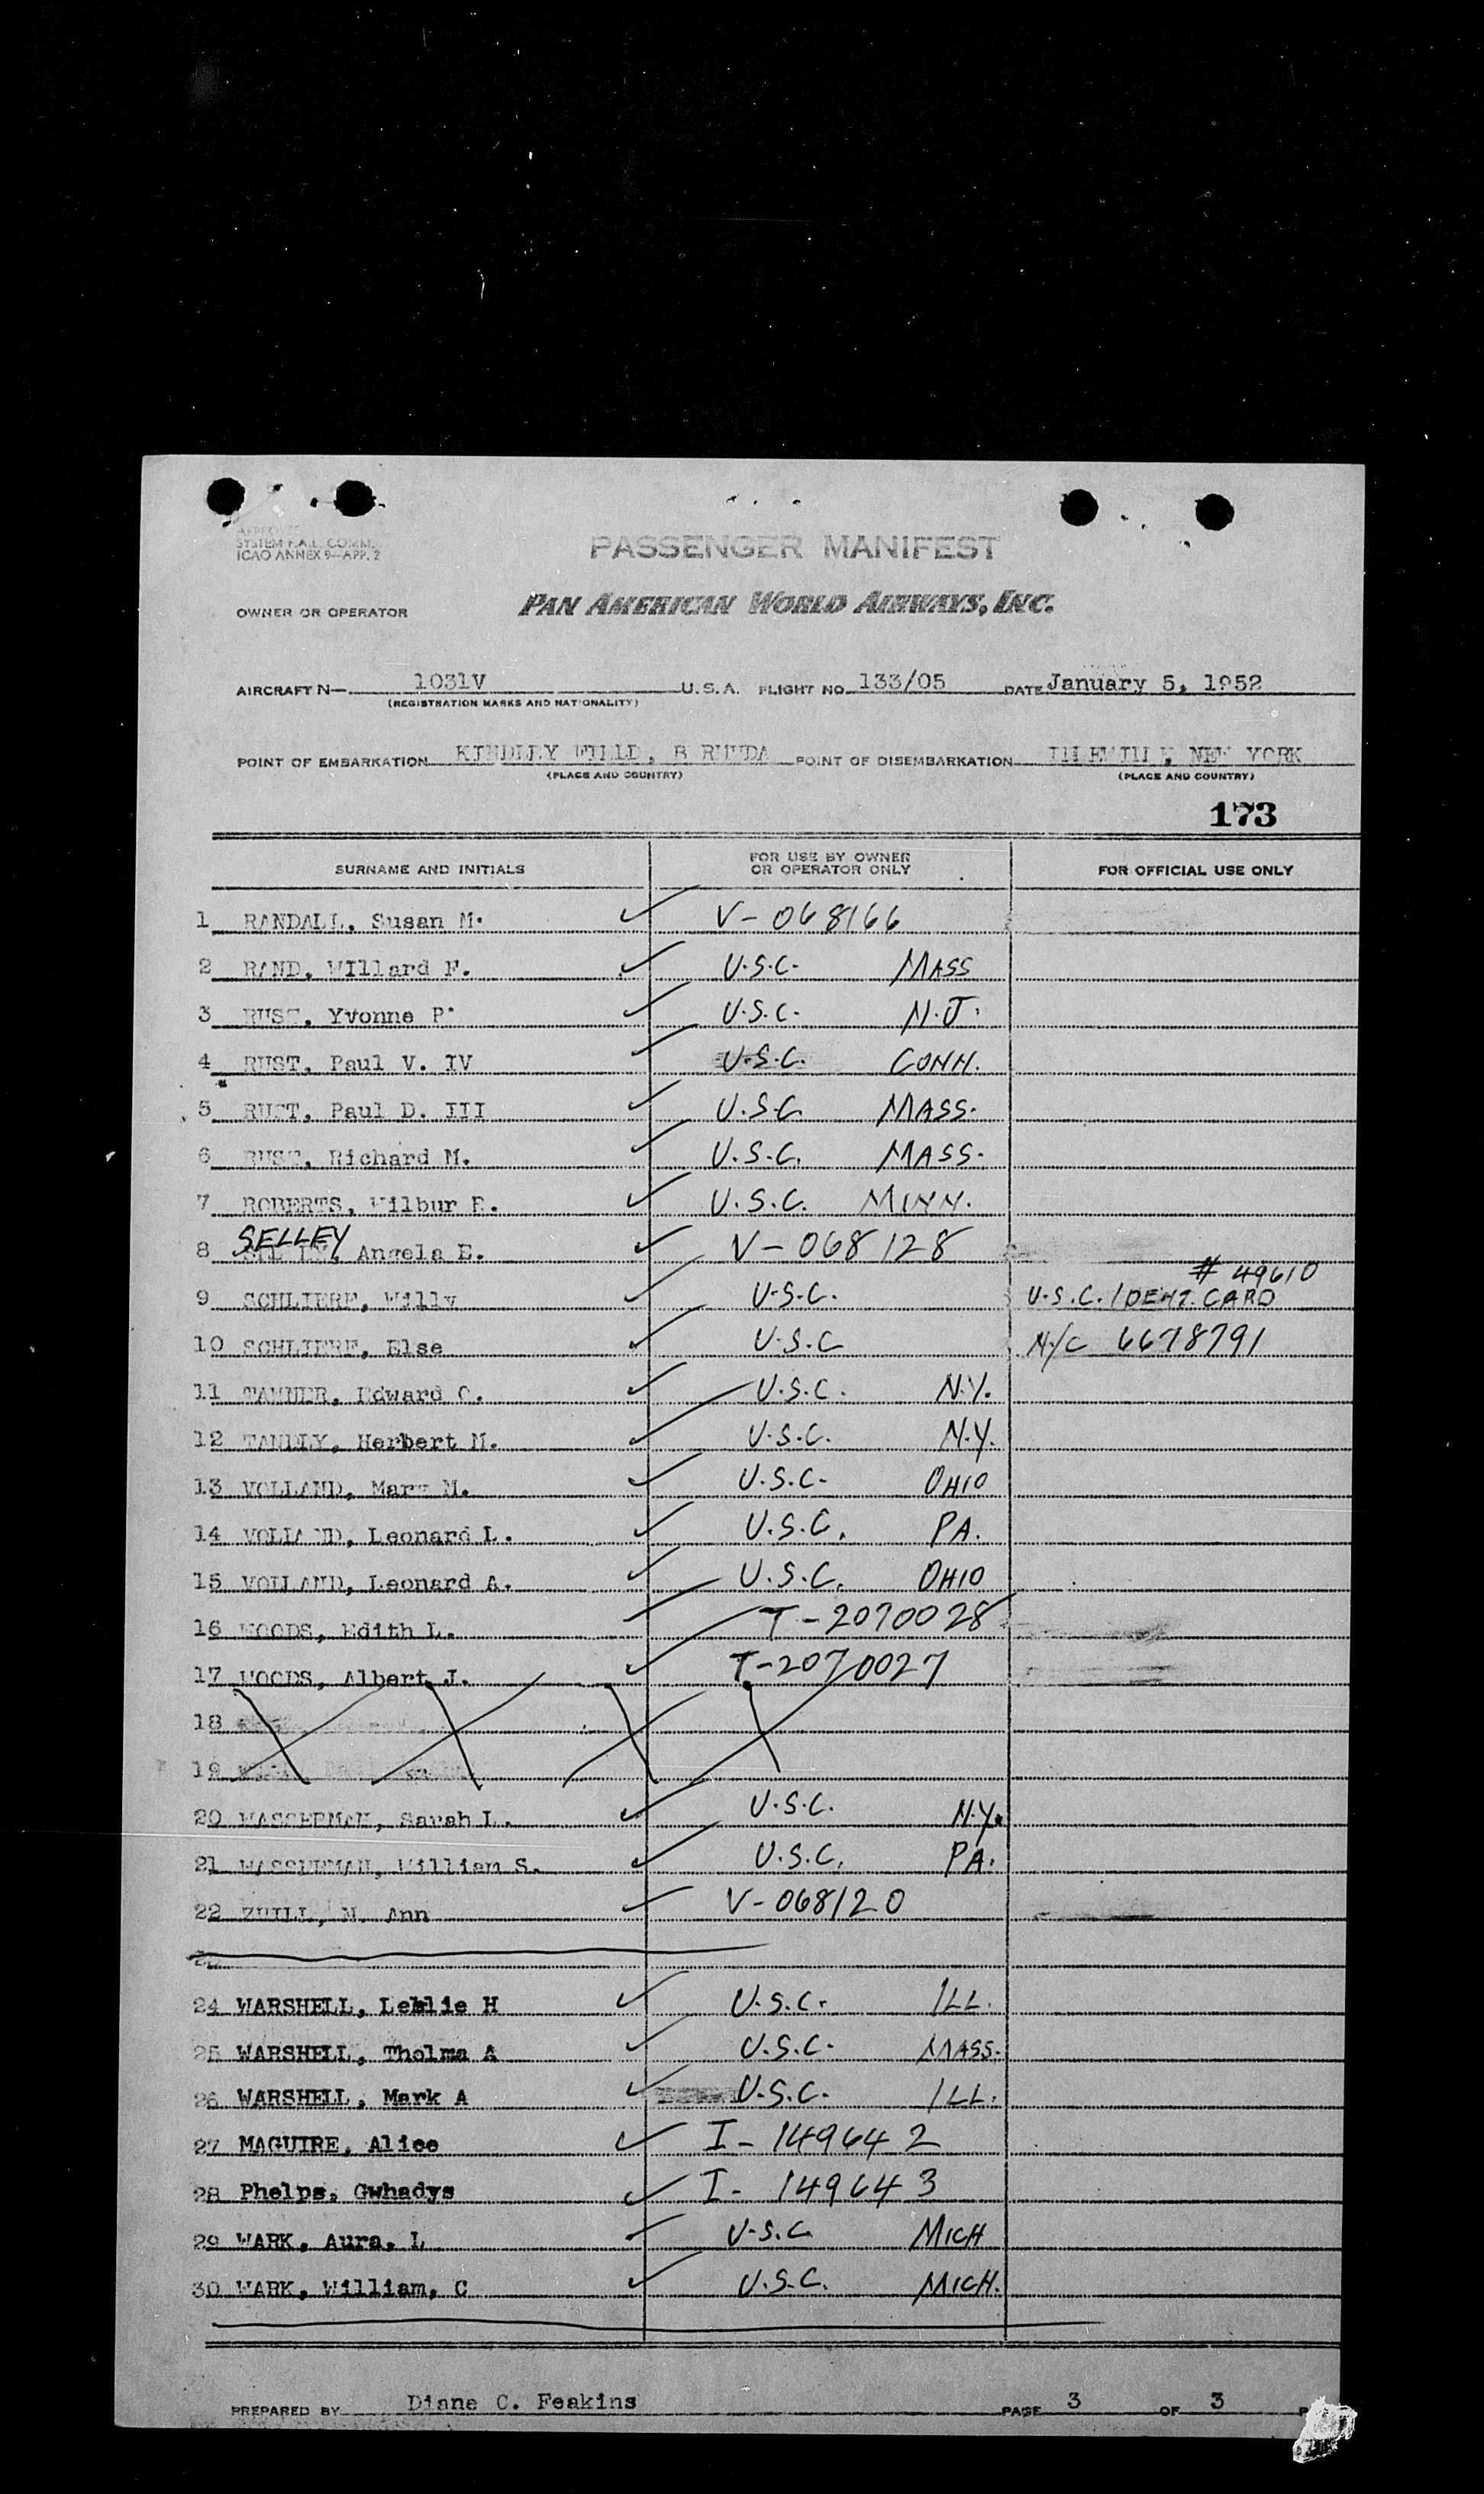 SYSTEM F.A.L. COMM.
ICAO ANNEX 9—APP. 2
PASSENGER MANIFEST
OWNER OR OPERATOR PAN AMERICAN WORLD AIRWAYS, INC.
AIRCRAFT N— 1031V U.S.A. FLIGHT NO. 133/05 DATE January 5, 1952
(REGISTRATION MARKS AND NATIONALITY)
POINT OF EMBARKATION KINDLEY FIELD, B RMUDA POINT OF DISEMBARKATION IDLEWILD, NEW YORK
(PLACE AND COUNTRY) (PLACE AND COUNTRY)
173
SURNAME AND INITIALS FOR USE BY OWNER OR OPERATOR ONLY FOR OFFICIAL USE ONLY
1 RANDALL, Susan M. V-068166
2 RAND, WIllard F. U.S.C. MASS
3 RUST, Yvonne P. U.S.C. N.J.
4 RUST, Paul V. IV U.S.C. CONN.
5 RUST, Paul D. III U.S.C. MASS.
6 RUST, Richard M. U.S.C. MASS.
7 ROBERTS, Wilbur R. U.S.C. MINN.
8 SELLEY, Angela E. V-068128
9 SCHLIERF, Willy U.S.C. U.S.C. IDENT. CARD # 49610
10 SCHLIERF, Else U.S.C N/C 6678791
11 TANNER, Edward C. U.S.C. N.Y.
12 Herbert M. U.S.C. N.Y.
13 VOLLAND, Mary M. U.S.C. OHIO
14 VOLLAND, Leonard L. U.S.C. PA.
15 VOLLAND, Leonard A. U.S.C. OHIO
16 WOODS, Edith L. T-2070028
17 WOODS, Albert J. T-2070027
18
19
20 WASSERMAN, Sarah L. U.S.C. N.Y.
21 WASSERMAN, William S. U.S.C. PA.
22 ZUILL, M. Ann V-068120
24 WARSHELL, Leslie H U.S.C. ILL.
25 WARSHELL, Thelma A U.S.C. MASS.
26 WARSHELL, Mark A U.S.C. ILL.
27 MAGUIRE, Alice I-149642
28 Phelps, Gwhadys I-149643
29 WARK, Aura, L U.S.C. MICH
30 WARK, William, C U.S.C. MICH.
PREPARED BY Diane C. Feakins PAGE 3 OF 3